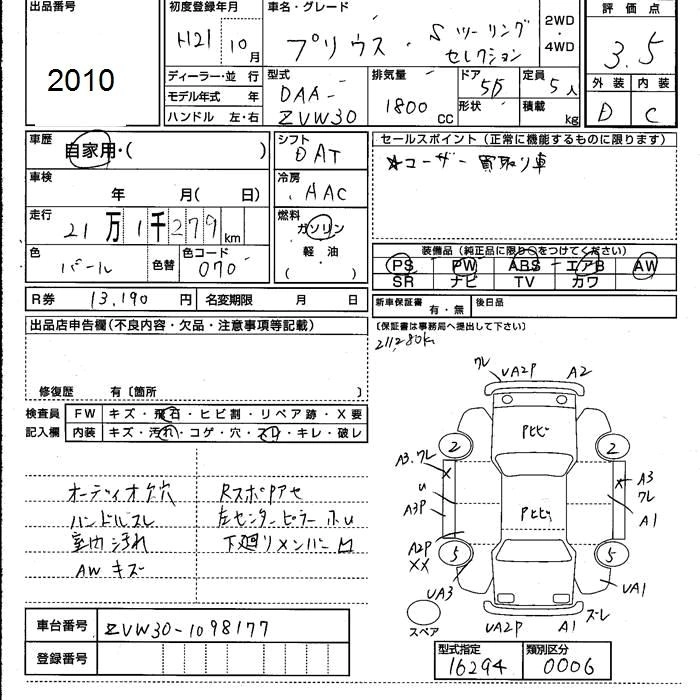 出品番号
2010
初度登録年月
H21 10月
車名・グレード
プリウス・Sツーリング
セレクション
2WD
・
4WD
評価点
3.5
外装 内装
D C
ディーラー・並行
モデル年式 年
ハンドル 左・右
型式
DAA-
ZVW30
排気量
1800 cc
ドア
5D
形状
定員
5人
積載
kg
車歴
自家用・( )
車検
年 月(日)
走行
21万1千279km
色
パール
色替
色コード
070
シフト
DAT
冷房
AAC
燃料
ガソリン
軽油
( ・ )
セールスポイント(正常に機能するものに限ります)
☆ユーザー買取り車
装備品(純正品に限り○をつけてください)
PS PW ABS エアB AW
SR ナビ TV カワ
R券 13,190円
名変期限 月 日
新車保証書 有・無
後日品
〔保証書は事務局へ提出して下さい〕
211,280k
出品店申告欄(不良内容・欠品・注意事項等記載)
修復歴 有〔箇所 〕
検査員
記入欄
FW キズ・飛石・ヒビ割・リペア跡・X要
内装 キズ・汚れ・コゲ・穴・スレ・キレ・破レ
オーディオ欠穴
ハンドルスレ
室内汚れ
AWキズ
RスポPアセ
左センターピラー小u
下廻りメンバー凹
クレ
UA2P
A2
Pヒビ
2
2
A3.クレ
X
u
A3P
A2P
XX
Pヒビ
X
A3
クレ
A1
5
5
UA3
UA1
UA2P
A1
ズレ
スペア
車台番号 ZVW30-1098177
登録番号
型式指定
16294
類別区分
0006